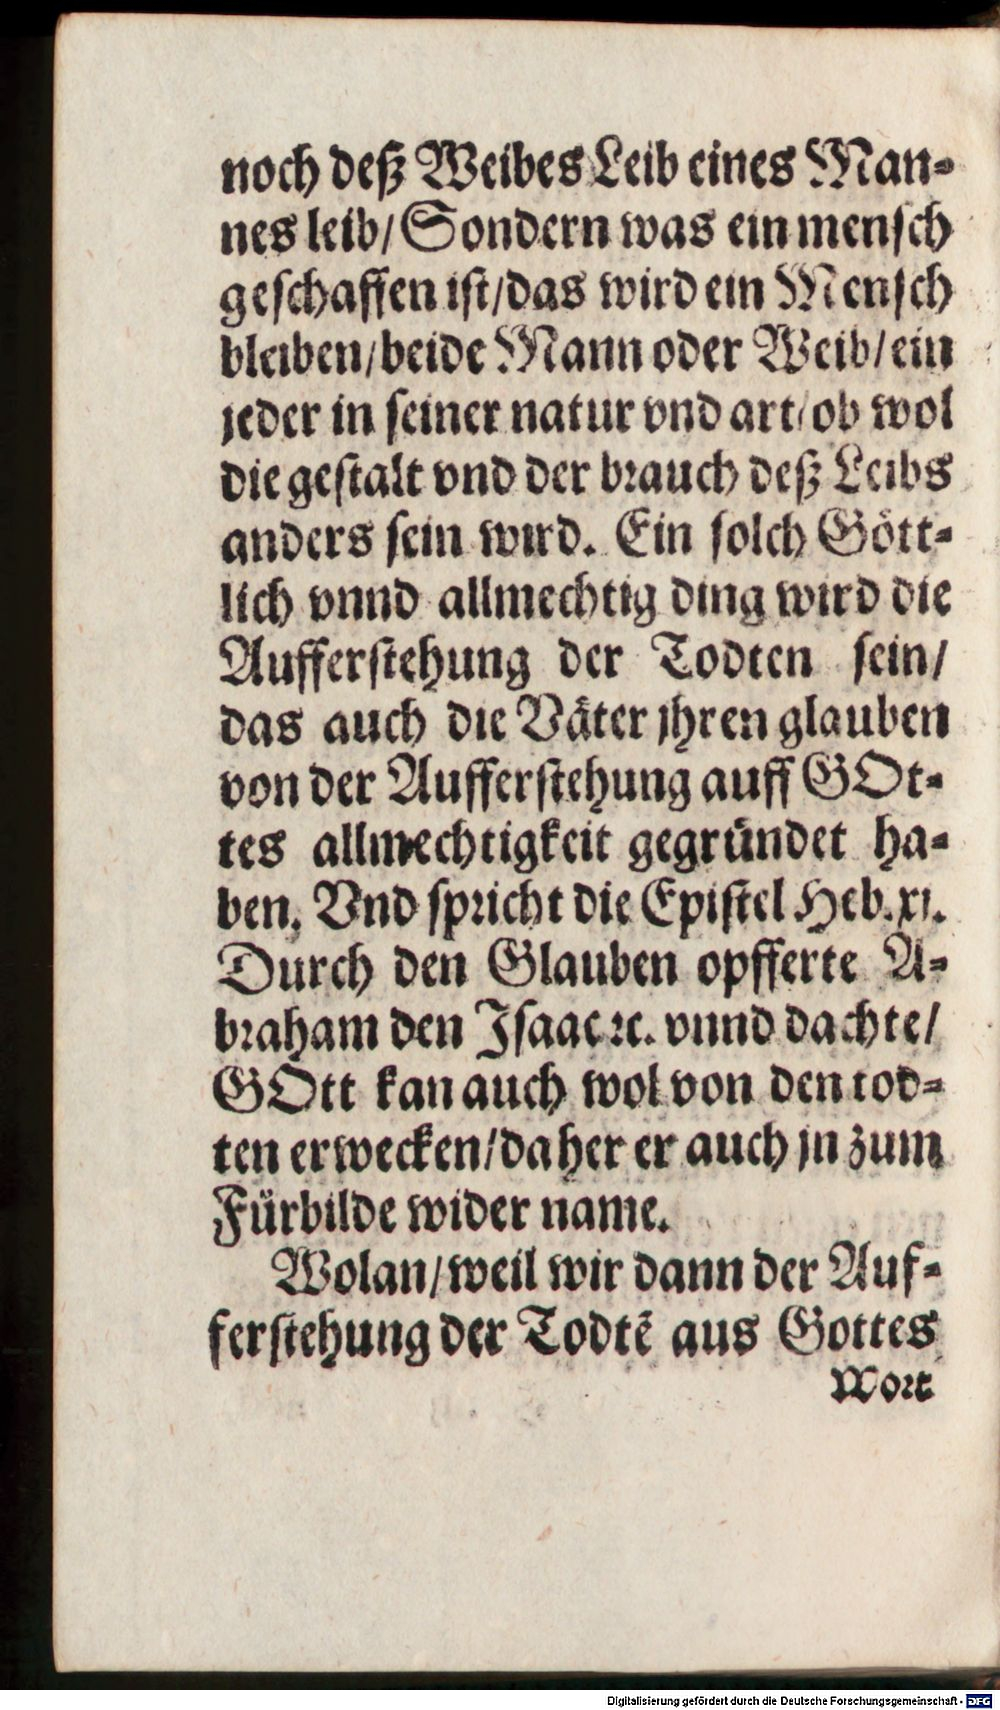 noch deß Weibes Leib eines Man-
nes leib/ Sondern was ein mensch
geschaffen ist/ das wird ein Mensch
bleiben/ beide Mann oder Weib/ ein
jeder in seiner natur vnd art/ ob wol
die gestalt vnd der brauch deß Leibs
anders sein wird. Ein solch Gött-
lich vnnd allmechtig ding wird die
Aufferstehung der Todten sein/
das auch die Väter jhren glauben
von der Aufferstehung auff GOt-
tes allmechtigkeit gegründet ha-
ben. Vnd spricht die Epistel Heb. xj.
Durch den Glauben opfferte A-
braham den Isaac ꝛc. vnnd dachte/
GOtt kan auch wol von den tod-
ten erwecken/ daher er auch jn zum
Fürbilde wider name.
Wolan/ weil wir dann der Auf-
ferstehung der Todtē aus Gottes
Wort
Digitalisierung gefördert durch die Deutsche Forschungsgemeinschaft - DFG